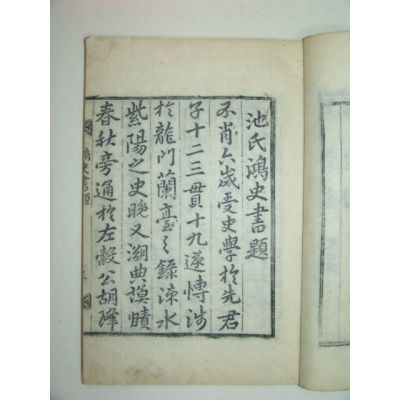 池氏鴻史書題
不肖六歲受史學於先君
子十二三貫十九遂博涉
於龍門蘭臺之錄涑水
紫陽之史晚又溯典謨賾
春秋旁通於左穀公胡繹
鴻史書題